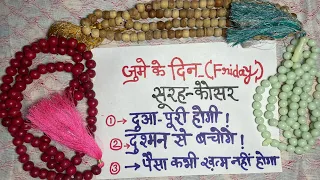 जुमे के दिन_(Friday)
सूरह-कौसर
① → दुआ-पूरी होगी !
② → दुश्मन से बचोगे !
③ → पैसा कभी खत्म नहीं होगा